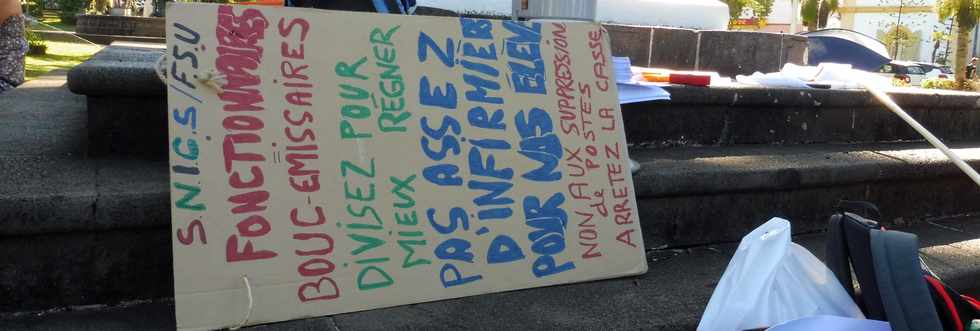 S.N.I.C.S/F.S.U
FONCTIONNAIRES
BOUC-EMISSAIRES
DIVISEZ POUR
MIEUX RÉGNER
PAS ASSEZ
D'INFIRMIÈRES
POUR NOS ÉLÈVES
NON AUX SUPPRESSION
de POSTES
ARRETEZ LA CASSE